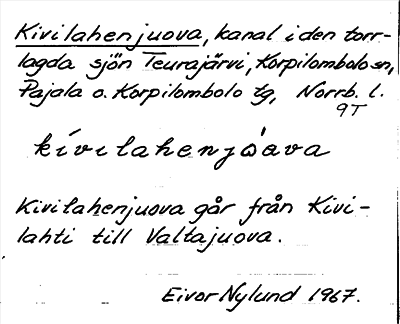 Kivilahenjuova, kanal i den torr-
lagda sjön Teurajärvi, Korpilombolo sn,
Pajala o. Korpilombolo tg, Norrb. l.
9T
kívilahenjòava
Kivilahenjuova går från Kivi-
lahti till Valtajuova.
Eivor Nylund 1967.